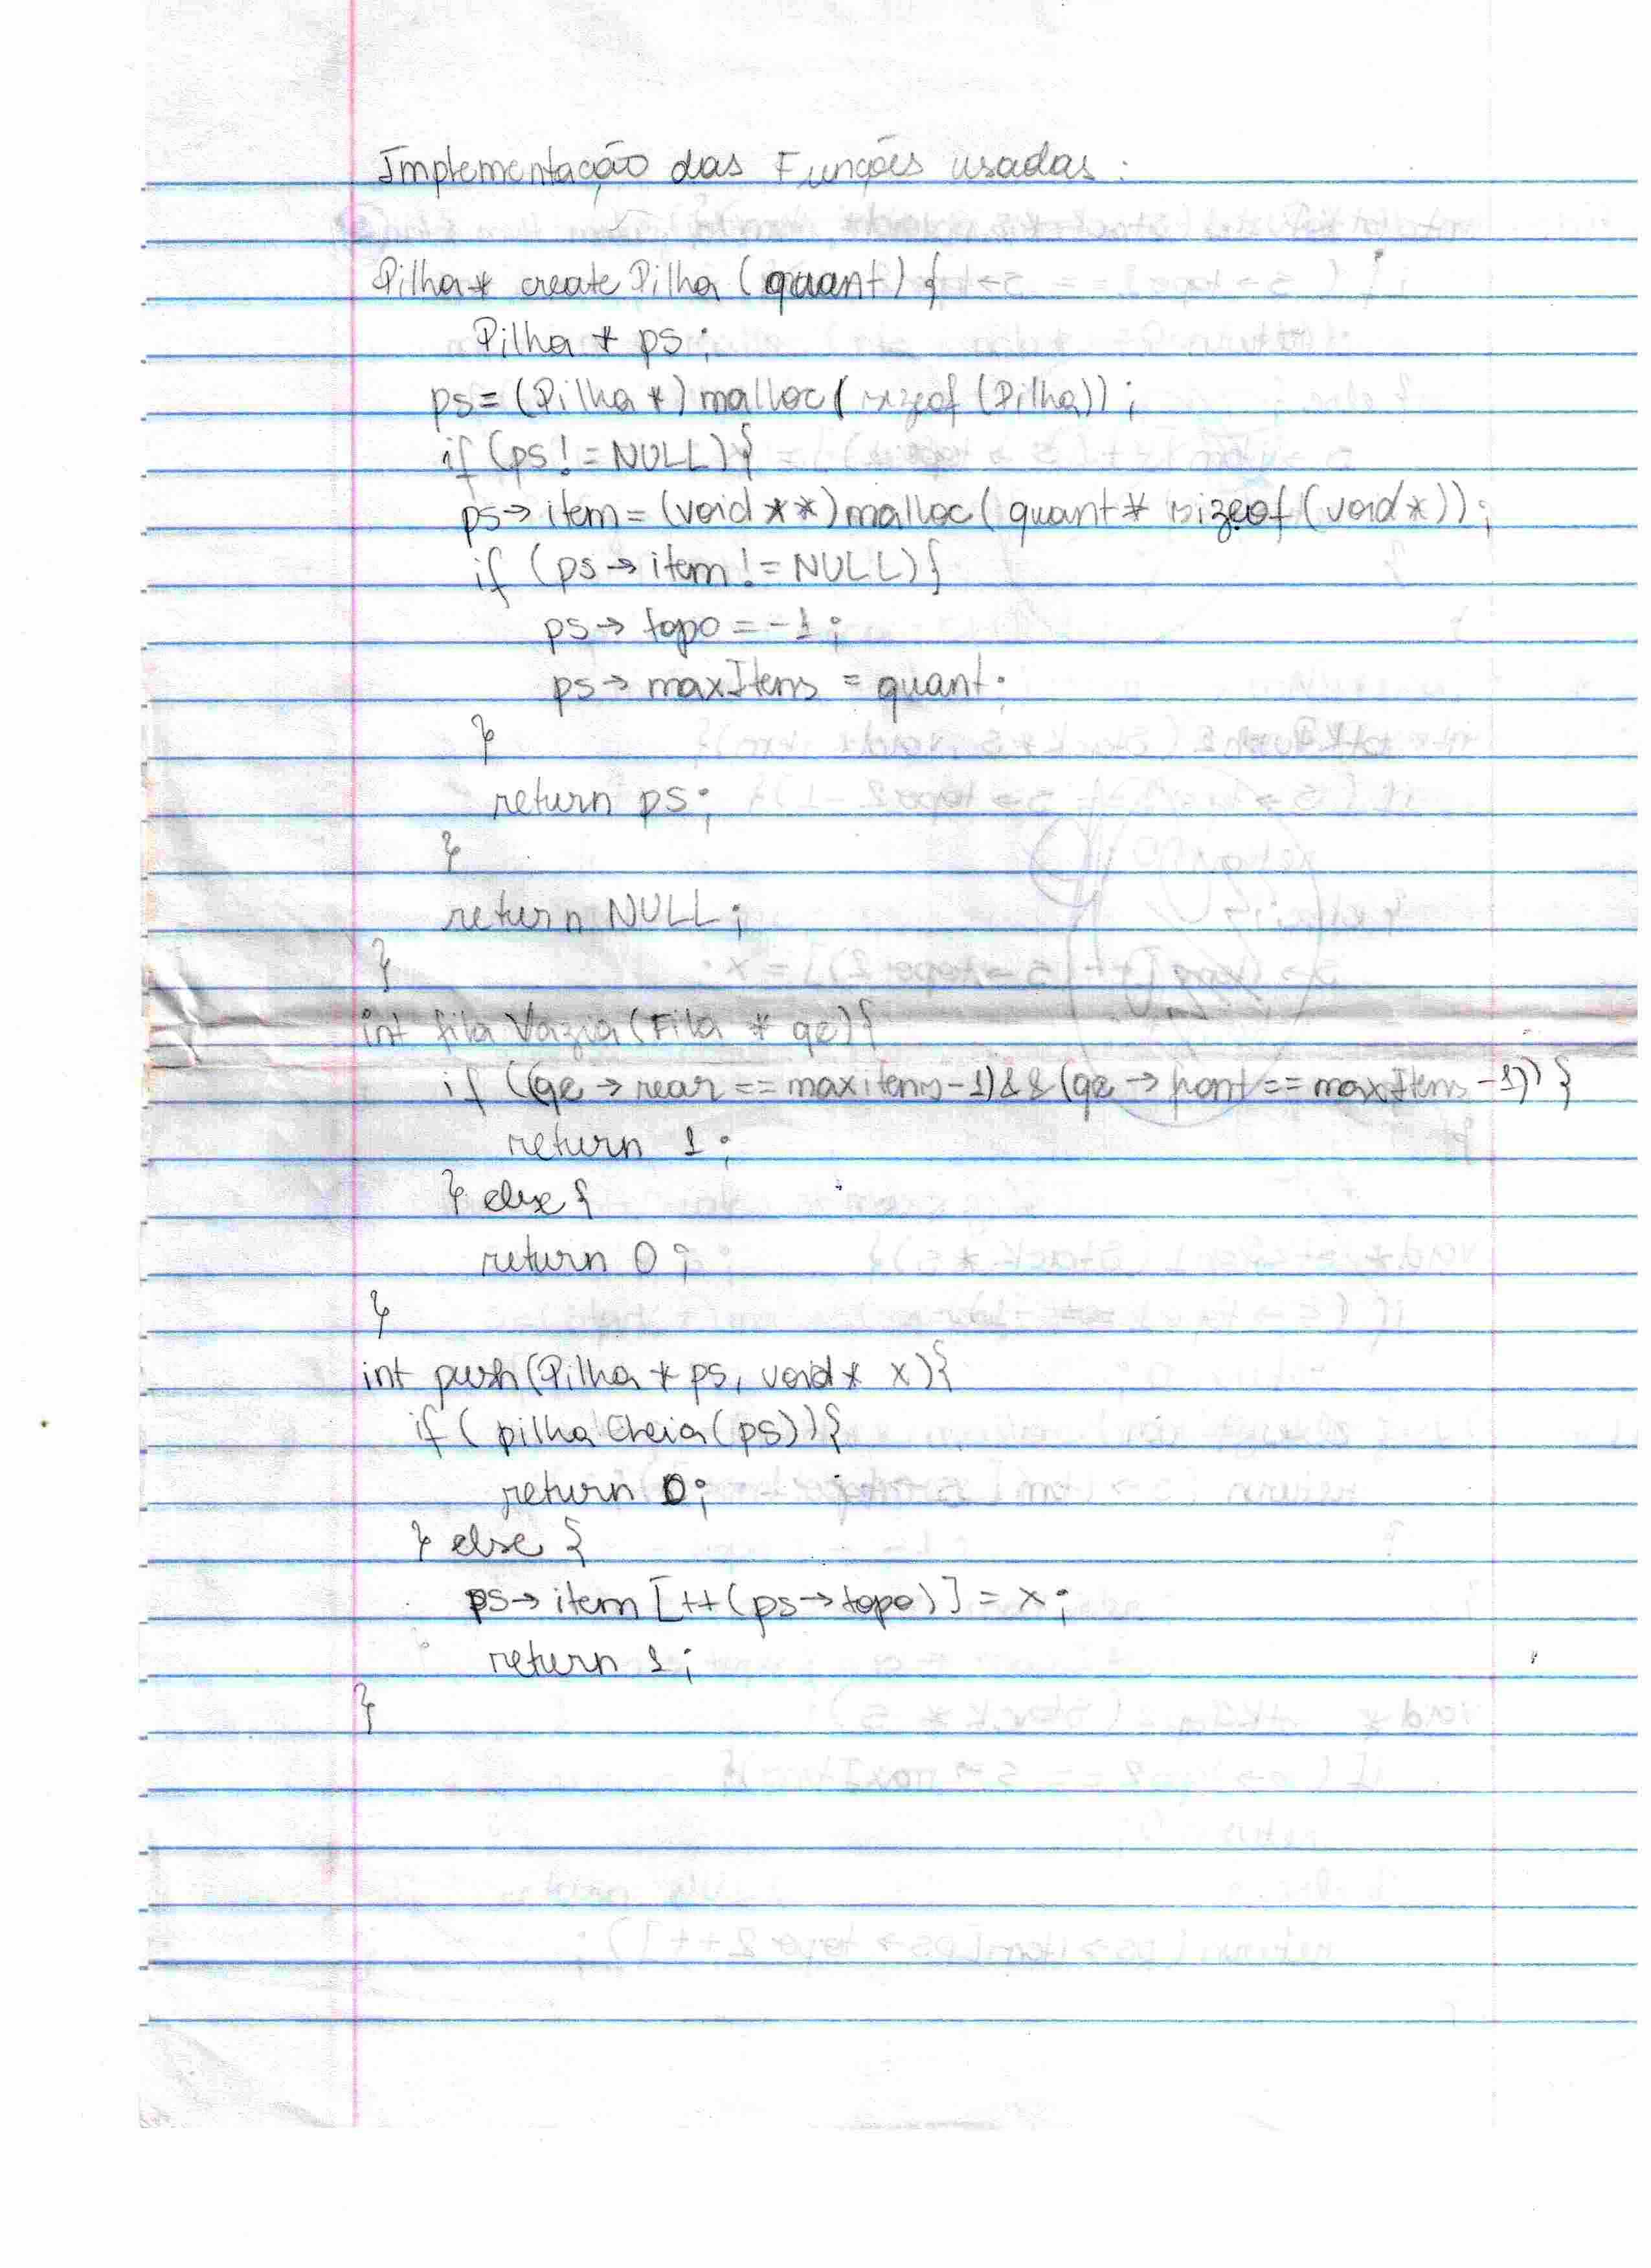 Implementação das Funções usadas:
Pilha* createPilha (quant) {
Pilha * ps;
ps = (Pilha *) malloc( sizeof (Pilha));
if (ps != NULL){
ps→item = (void **) malloc( quant * sizeof (void*));
if (ps→item != NULL){
ps→topo = -1;
ps→maxItens = quant;
}
return ps;
}
return NULL;
}
int filaVazia (Fila * qe){
if ((qe→rear == maxitens-1)&&(qe→front == maxItens-1)) {
return 1;
} else {
return 0;
}
int push(Pilha * ps, void* x){
if ( pilhaCheia(ps)){
return 0;
} else {
ps→item [++(ps→topo)] = x;
return 1;
}